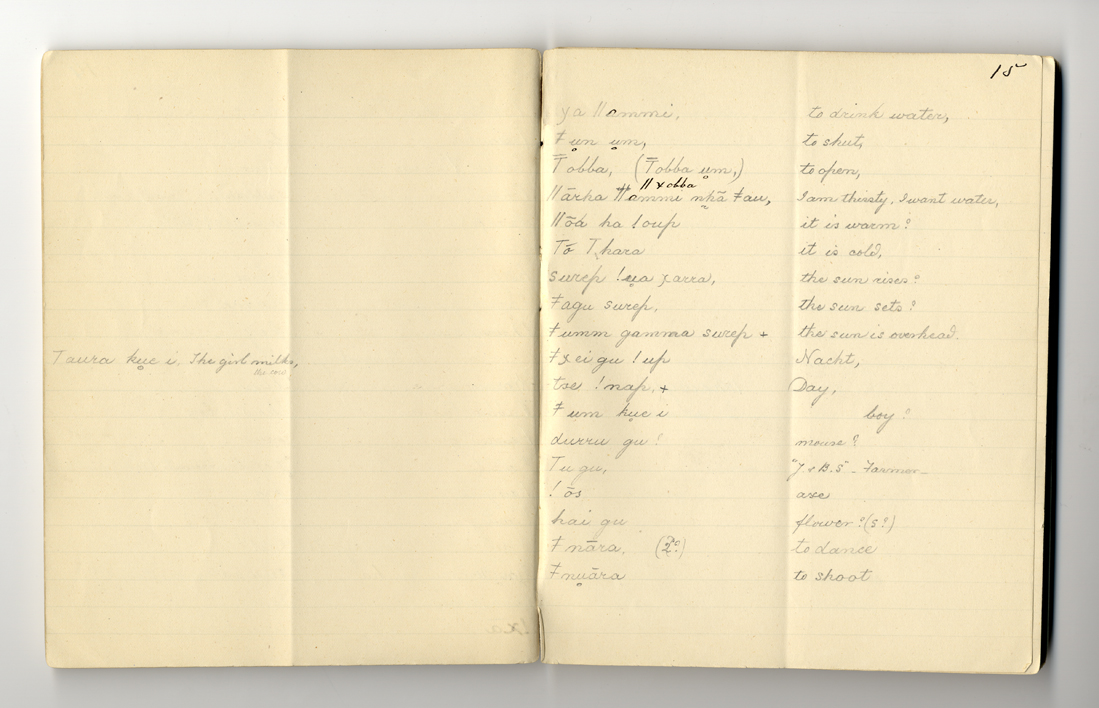 Taura kụe i. The girl milks,
the cow
15
ya ǁammi, to drink water,
ǂụn ụm, to shut,
Ŧobba, (Ŧobba ụm,) to open,
ǁxobba
ǁārka ǁammi nḥā ǂau, I am thirsty, I want water,
ǁōá ha !oup it is warm?
Tō Tḥara it is cold,
surep !ụa xarra, the sun rises?
ǂagu surep, the sun sets?
ǂumm gamma surep + the sun is overhead.
ǂxei gu !up Nacht,
tse !nap, + Day,
ǂum kụe i boy?
durru gu? mouse?
Tu gu, "J & B.S" - Farmer -
!ōs axe
hai gu flower? (s?)
ǂnāra, (2?) to dance
ǂnụāra to shoot